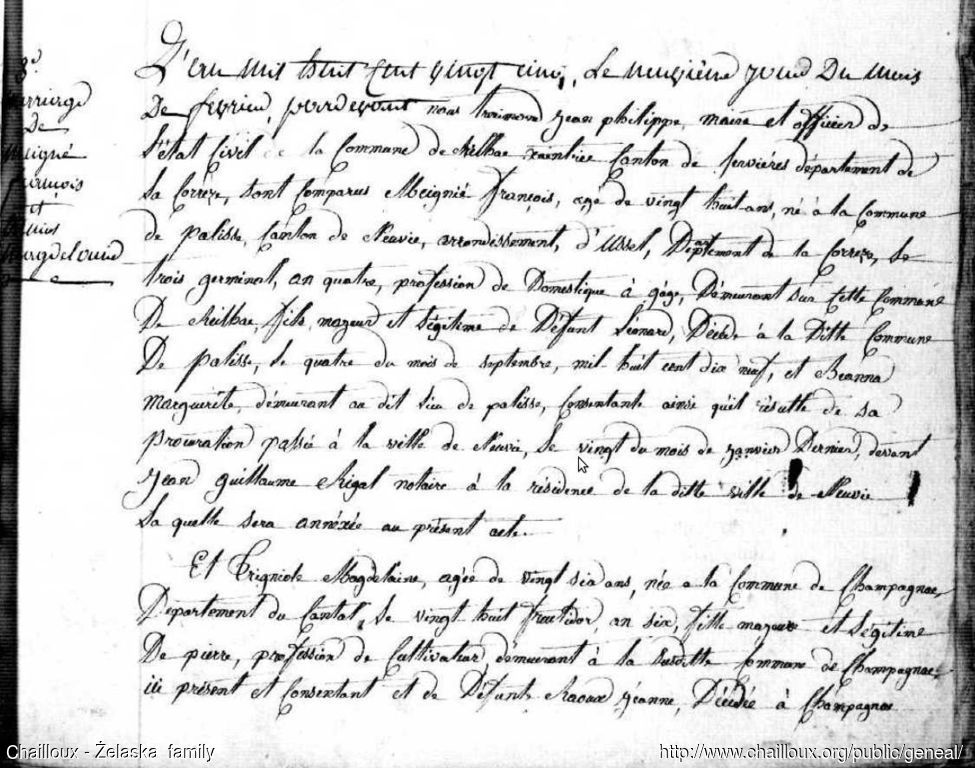 8e
mariage
De
Meignié
francois
et
magdelaine
L'an mil huit cent vingt cinq, Le neuvième jour Du mois
De fevrier, pardevant nous jean philippe, maire et officier de
L'état Civil de la Commune de Reilhac xaintrie Canton de servières département de
La Correze, sont Comparus Meignié François, agé de vingt huit ans, né à la Commune
de Palisse, Canton de Neuvic, arrondissement, d'Ussel, Département de la Correze, Le
trois germinal, an quatre, profession de Domestique à gage, Démeurant sur Cette Commune
De Reilhac, fils majeur et Légitime de Défunt Léonard, Décédé à la Ditte Commune
De palisse, Le quatre du mois de septembre, mil huit cent dix neuf, et Beanna
Marguerite, démeurant au dit Lieu de palisse, Consentante ainsi qu'il résulte de sa
Procuration passée à la ville de Neuvic, Le vingt du mois de janvier Dernier, devant
jean guillaume Rigal notaire à la résidence de la ditte ville de Neuvic
La quelle sera annéxée au présent acte.
Et Trigniole Magdelaine, agée de vingt six ans, née a la Commune de Champagnac,
Département du Cantal, Le vingt huit fructidor, an six, fille majeure et Légitime
De pierre, profession de Cultivateur, démeurant à la susditte Commune de Champagnac,
ici présent et Consentant et de Défunte Raoux jeanne, Décédée à Champagnac
Chailloux - Żelaska family
http://www.chailloux.org/public/geneal/